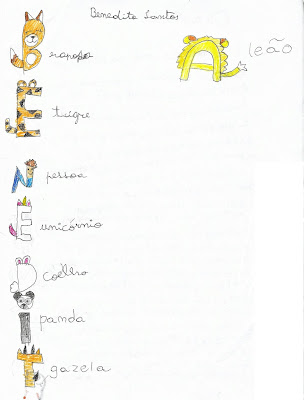 Benedita Santos
B raposa
A leão
E tigre
N pessoa
E unicórnio
D coelho
I panda
T gazela